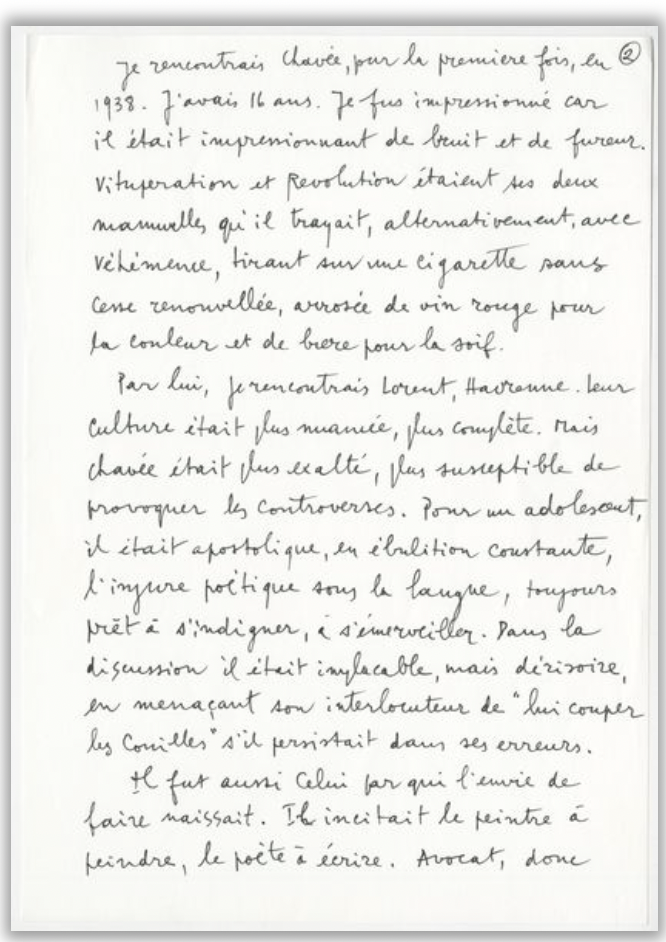 je rencontrais Chavée, pour la premiere fois, en ②
1938. J'avais 16 ans. Je fus impressionné car
il était impressionnant de bruit et de fureur.
Vituperation et Revolution étaient ses deux
mamelles qu'il trayait, alternativement, avec
véhémence, tirant sur une cigarette sans
cesse renouvellée, arrosée de vin rouge pour
la couleur et de biere pour la soif.
Par lui, je rencontrais Lorent, Havrenne. Leur
culture était plus nuancée, plus complète. Mais
chavée était plus exalté, plus susceptible de
provoquer les controverses. Pour un adolescent,
il était apostolique, en ébulition constante,
l'injure poétique sous la langue, toujours
prêt à s'indigner, à s'émerveiller. Dans la
discussion il était implacable, mais dérisoire,
en menaçant son interlocuteur de "lui couper
les Couilles" s'il persistait dans ses erreurs.
Il fut aussi Celui par qui l'envie de
faire naissait. Il incitait le peintre à
peindre, le poète à écrire. Avocat, donc